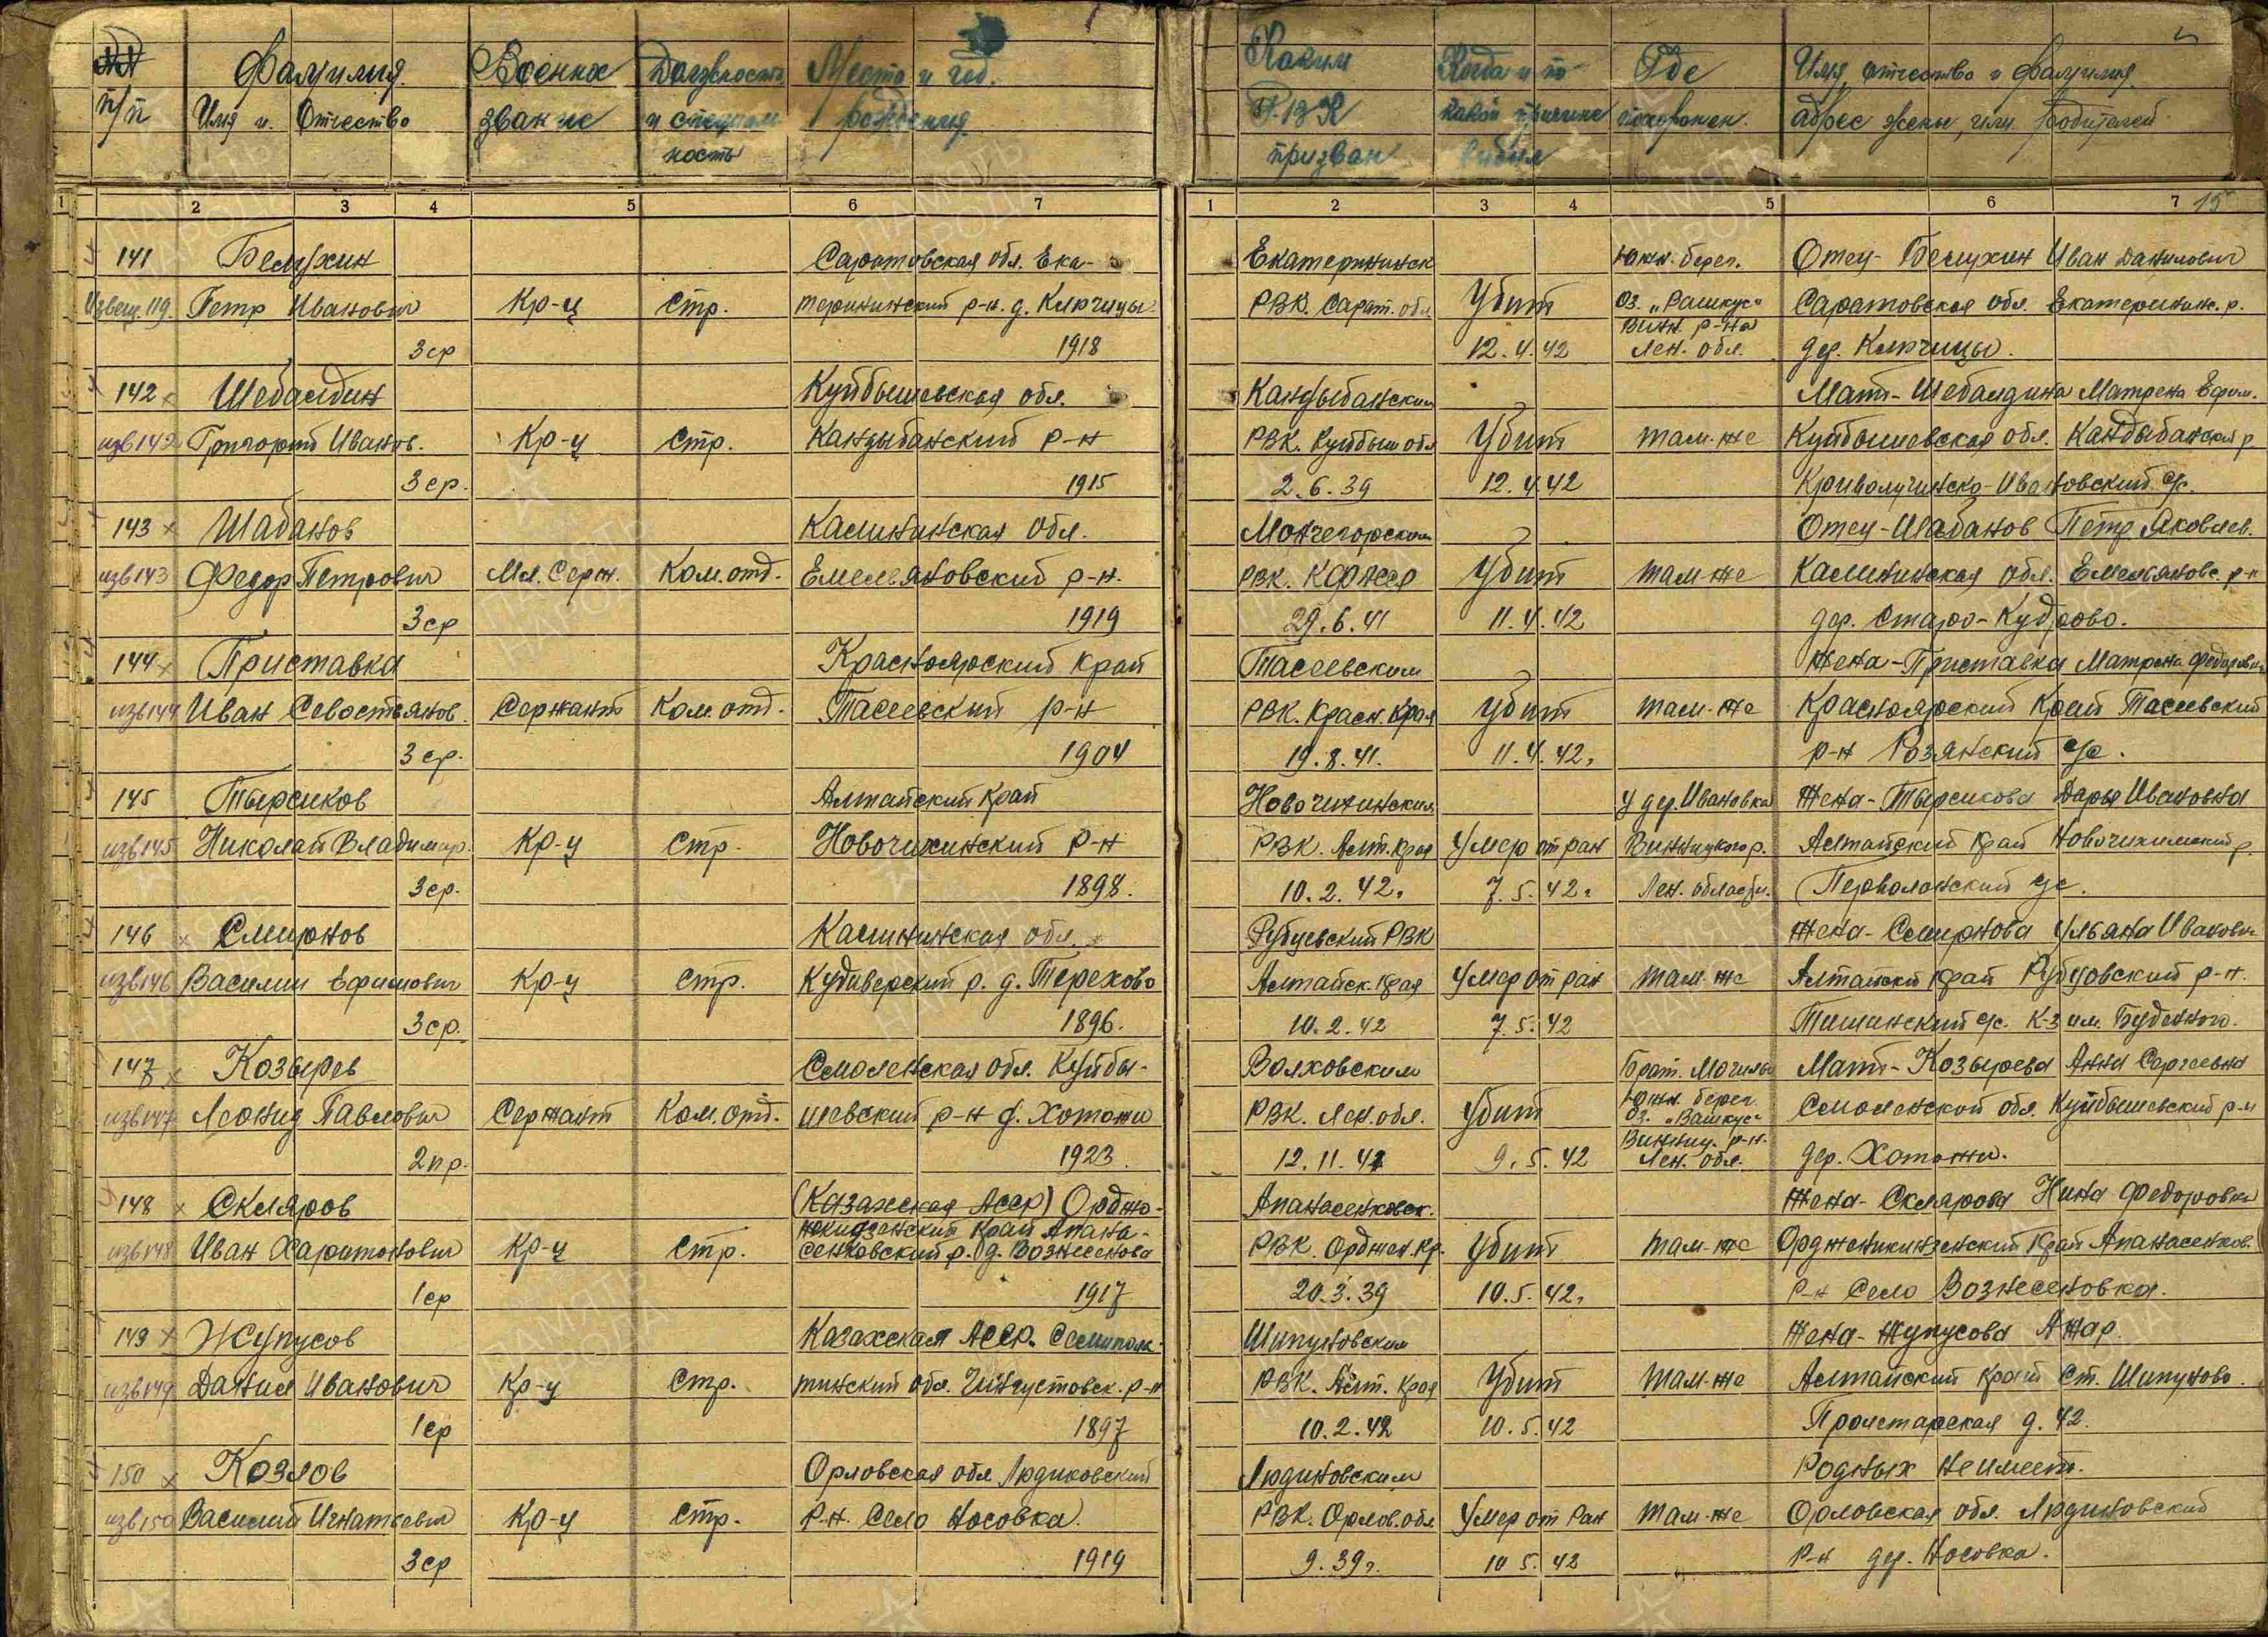 №№ п/п
Фамилия Имя и Отчество
Военное звание
Должность и специальность
Место и год рождения
Каким РВК призван
Когда и по какой причине выбыл
Где похоронен
Имя, отчество и фамилия, адрес жены, или родителей
1 2 3 4 5 6 7
1 2 3 4 5 6 7 15
141 Белухин Саратовская обл. Ека- Екатерининск Южн. берег. Отец- Белухин Иван Данилович
Извещ. 119. Петр Иванович Кр-ц Стр. терининский р-н. д. Кипчицы РВК. Сарат. обл. Убит Оз. „Рашкус“ Саратовская обл. Екатеринин. р.
Винн. р-на
3 ср 1918 12.4.42 Лен. обл. дер. Кипчицы.
142 Шебалдин Куйбышевская обл. Кандыбанским Мать- Шебалдина Матрена Ефим.
изв 142 Григорий Иванов. Кр-ц Стр. Кандыбанский р-н РВК. Куйбыш обл Убит там-же Куйбышевская обл. Кандыбанский р
3 ср. 1915 2.6.39 12.4.42 Криволучинско-Ивановский с/с.
143 Шабанов Калининская обл. Мончегорским Отец-Шабанов Петр Яковлев.
изв 143 Федор Петрович Мл. Серж. Ком. отд. Емельяновский р-н. РВК. КФССР Убит там-же Калининская обл. Емельяновс. р-н
3 ср 1919 29.6.41 11.4.42 дер. Старо-Кудрово.
144 Приставка Красноярский край Тасеевским Жена-Приставка Матрена Федоровн
изв 144 Иван Севостьянов. Сержант Ком. отд. Тасеевский р-н РВК. Красн. Края Убит там-же Красноярский Край Тасеевский
3 ср. 1904 19.8.41. 11.4.42г р-н Вэзянский с/с.
145 Тырсиков Алтайский Край Новочихинским у дер. Ивановка Жена-Тырсикова Дарья Ивановна
изв 145 Николай Владимир. Кр-ц Стр. Новочихинский р-н РВК. Алт. Края Умер от ран Винницкого р. Алтайский Край Новочихинский р.
3 ср. 1898. 10.2.42г 7.5.42г Лен. области. Перволанский с/с.
146 Смирнов Калининская обл. Рубцевский РВК Жена-Смирнова Ульяна Ивановн
изв 146 Василий Ефимович Кр-ц Стр. Кудиверский р. д. Терехово Алтайск. Края Умер от ран там-же Алтайский край Рубцовский р-н.
3 ср. 1896. 10.2.42 7.5.42 Тишинский с/с. К-з им. Буденного.
147 Козырев Смоленская обл. Куйбы- Волховским Брат. Могила Мать-Козырева Анна Сергеевна
изв 147 Леонид Павлович Сержант Ком. отд. шевский р-н д. Хотожи РВК. Лен. обл. Убит Южн. берег Оз. „Вашкус“ Смоленской обл. Куйбышевский р-н
2 пр. 1923. 12.11.41 9.5.42 Винниц. р-н. Лен. обл. дер. Хотожи.
148 Скляров (Казахская АССР) Орджо- Апанасенковск. Жена-Склярова Нина Федоровна
изв 148 Иван Харитонович Кр-ц Стр. никидзенский Край Апана-
сенковский р. (д. Вознесеновка РВК. Орджен. Кр. Убит там-же Орджникинзенский Край Апанасенков.
1 ср 1917 20.3.39 10.5.42г р-н Село Вознесеновка.
149 Жупусов Казахская АССР. Семипала- Шипуновским Жена-Жупусова Ажар.
изв 149 Данил Иванович Кр-ц Стр. тинский обл. Чингустовск. р-н РВК. Алт. Края Убит там-же Алтайский край ст. Шипуново.
1 ср 1897 10.2.42 10.5.42 Пролетарская д. 42.
150 Козлов Орловская обл. Людиковский Людиновским Родных не имеет.
изв 150 Василий Игнатьевич Кр-ц Стр. р-н. Село Носовка. РВК. Орлов. обл Умер от Ран там-же Орловская обл. Людиновский
3 ср 1919 9.39г. 10 5.42 р-н дер. Носовка.